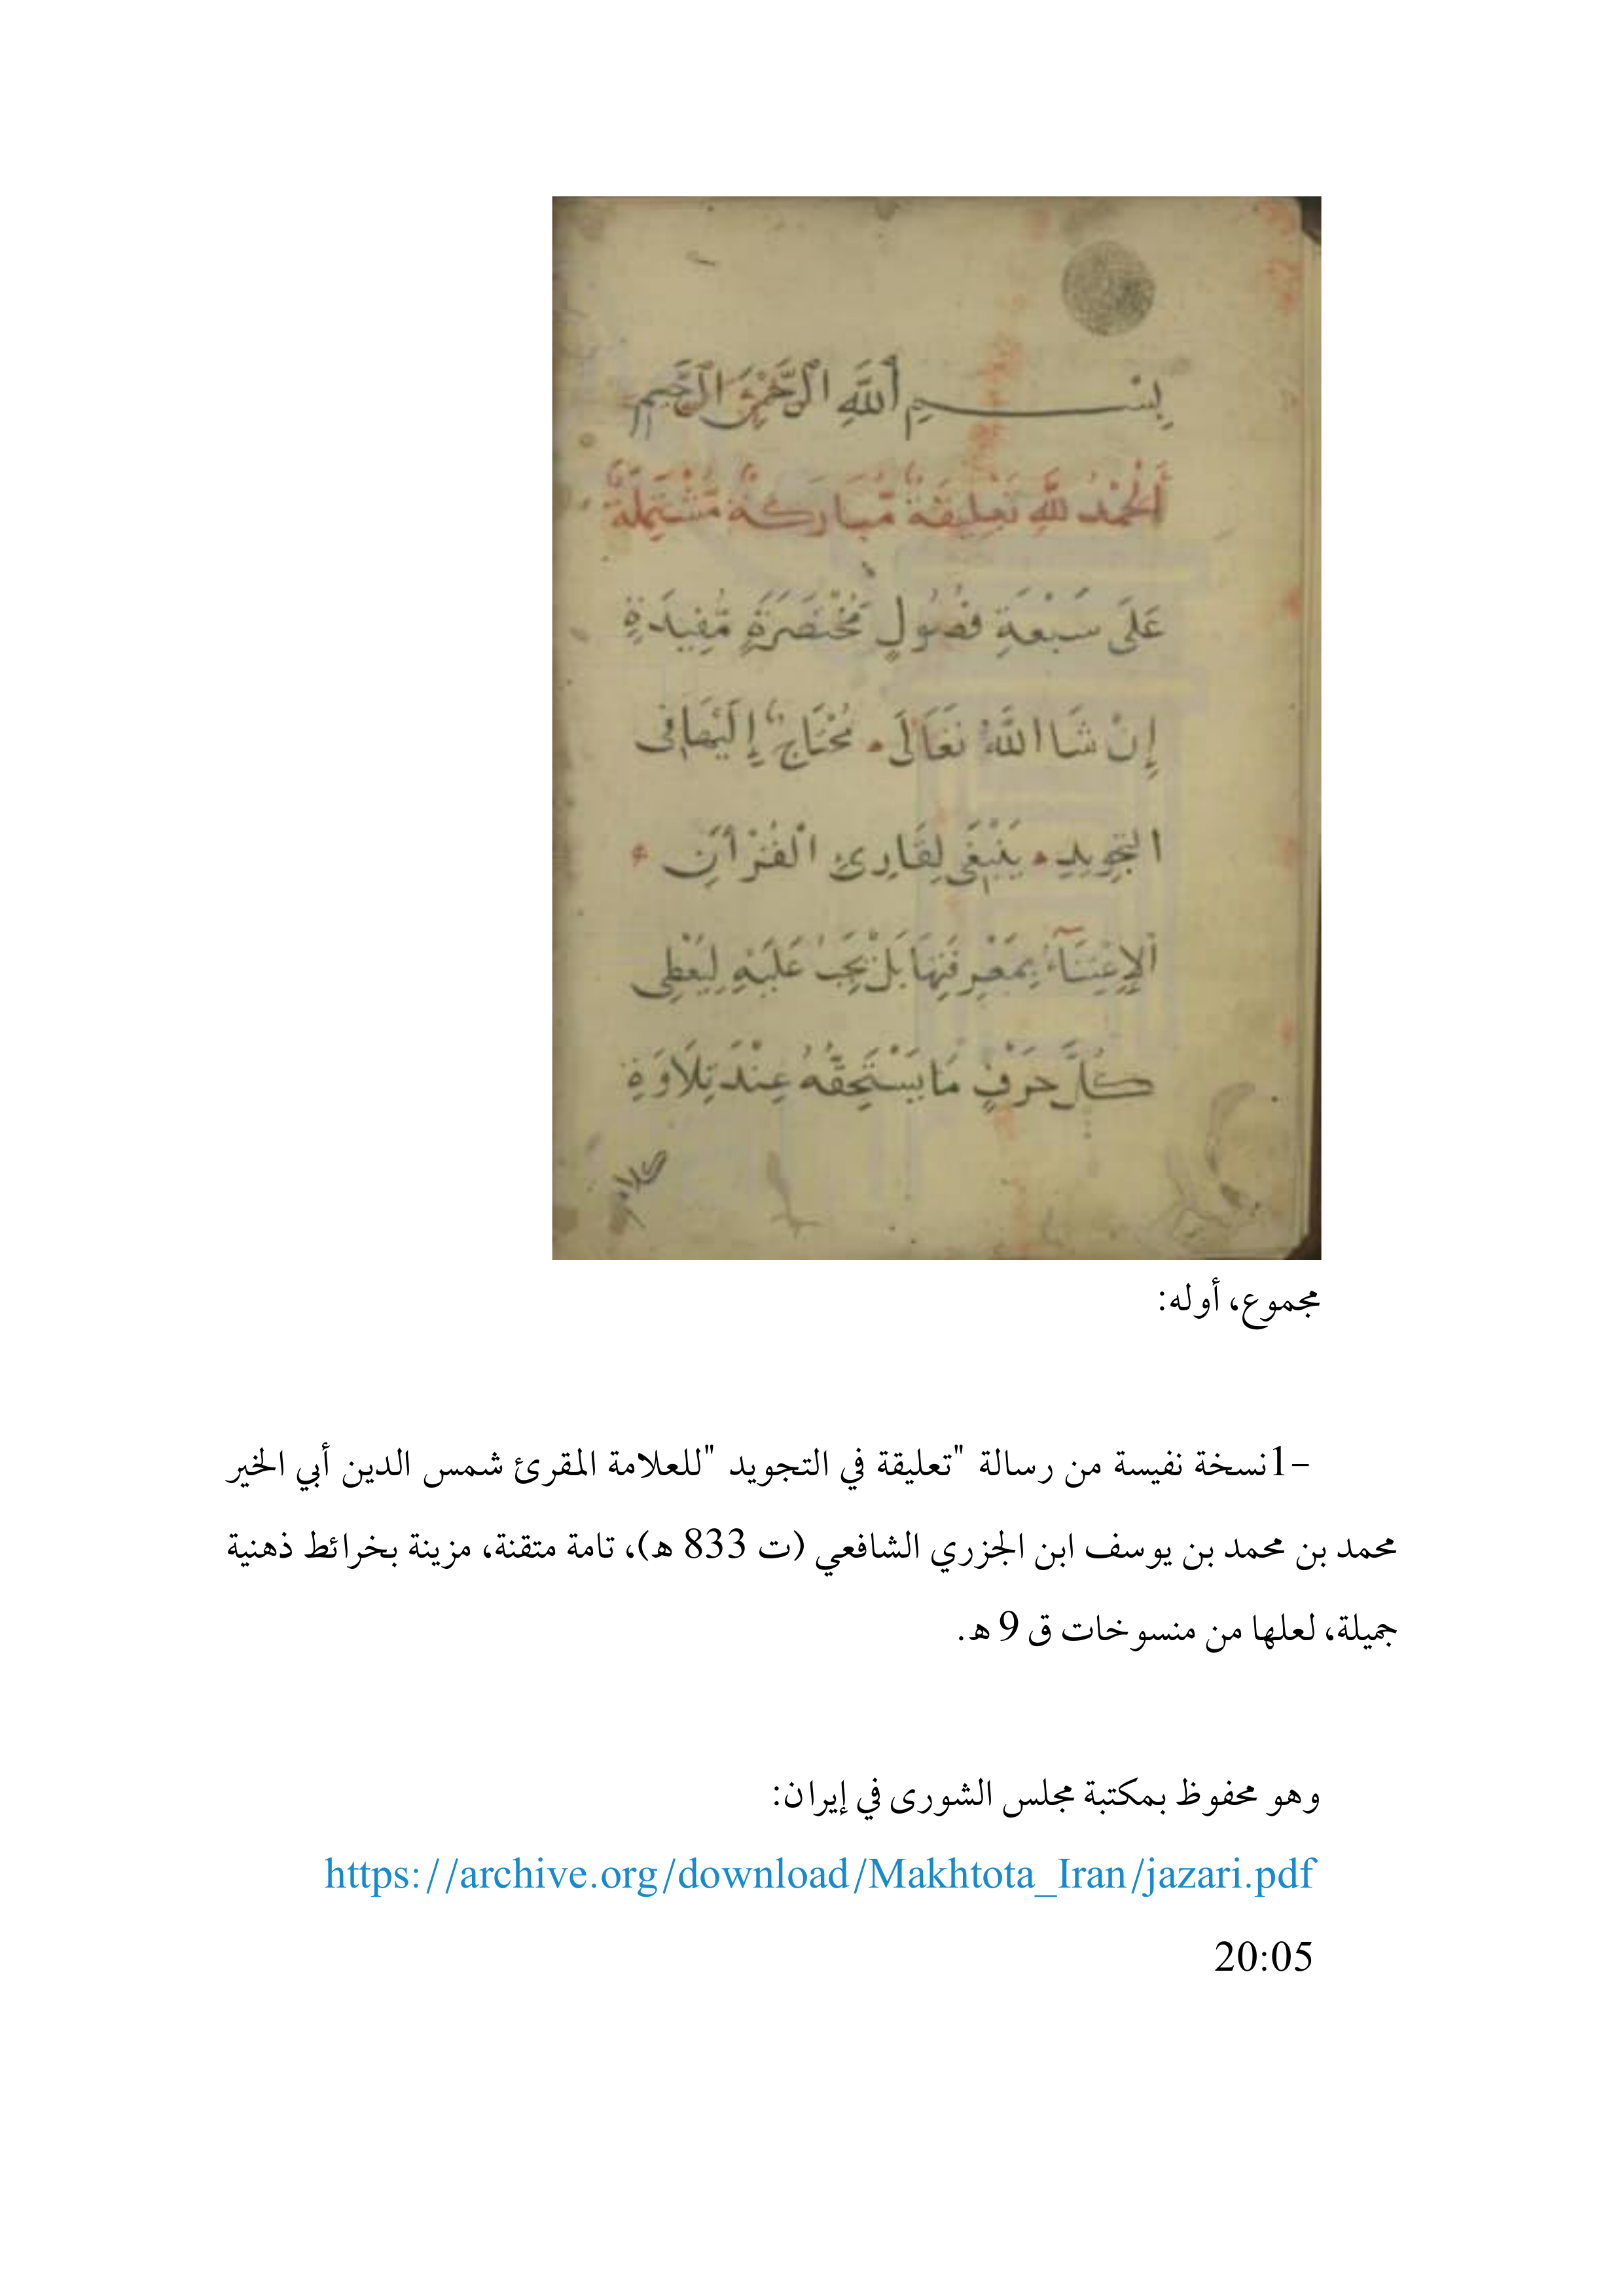 بِسْمِ اللَّهِ الرَّحْمَٰنِ الرَّحِيمِ
أَلْحَمْدُ لِلَّهِ تَعْلِيقَةٌ مُّبَارَكَةٌ مُّشْتَمِلَةٌ
عَلَى سَبْعَةِ فُصُولٍ مُخْتَصَرَةٍ مُّفِيدَةٍ
إِنْ شَا اللَّهُ تَعَالَى مُحْتَاجٌ إِلَيْهَا فِى
التَّجْوِيدِ يَنْبَغِى لِقَارِئِ الْقُرْأَنِ
الْإِعْتِنَاءُ بِمَعْرِفَتِهَا بَلْ يَجِبُ عَلَيْهِ لِيُعْطِى
كُلَّ حَرْفٍ مَا يَسْتَحِقُّهُ عِنْدَ تِلَاوَةِ
كلام
مجموع، أوله:
-1نسخة نفيسة من رسالة "تعليقة في التجويد "للعلامة المقرئ شمس الدين أبي الخير
محمد بن محمد بن يوسف ابن الجزري الشافعي (ت 833 ه)، تامة متقنة، مزينة بخرائط ذهنية
جميلة، لعلها من منسوخات ق 9 ه.
وهو محفوظ بمكتبة مجلس الشورى في إيران:
https://archive.org/download/Makhtota_Iran/jazari.pdf
20:05